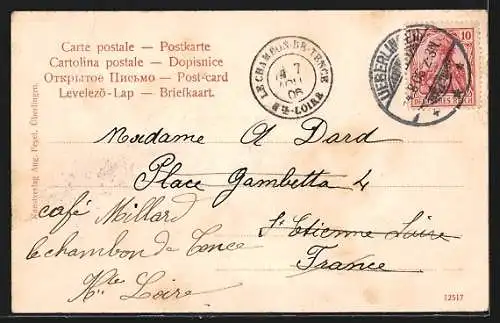 Carte postale — Postkarte
Cartolina postale — Dopisnice
Открытое Письмо — Post-card
Levelező-Lap — Briefkaart.
LE CHAMBON-DE-TENCE
7
06
LOIRE
UEBERLINGEN
10
DEUTSCHES REICH
Kunstverlag Aug. Feyel, Überlingen.
Madame A Dard
Place Gambetta 4
café Millard
St Etienne Loire
le chambon de Tence
France
Hte Loire
12517